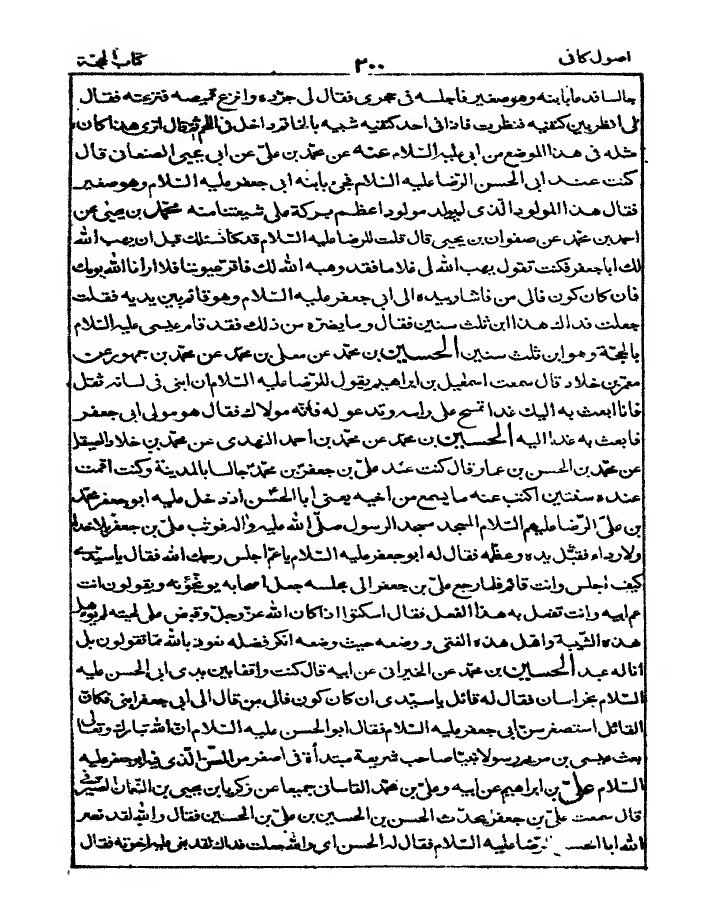 اصول کافی ٢٠٠ کتاب الحجّة
جالسا فدعا بابنه وهو صغیر فاجلسه فی حجری فقال لی جرّده وانزع قمیصه فنزعته فقال
لی انظر بین کتفیه فنظرت فاذا فی احد کتفیه شبیه بالخاتم داخل فی اللحم ثم قال اتری هذا کان
مثله فی هذا الموضع من ابی علیه السّلام عنه عن محمّد بن علیّ عن ابی یحیی الصنعانی قال
کنت عند ابی الحسن الرّضا علیه السّلام فجئ بابنه ابی جعفر علیه السّلام وهو صغیر
فقال هذا المولود الّذی لم یولد مولود اعظم برکة علی شیعتنا منه محمّد بن یحیی عن
احمد بن محمّد عن صفوان بن یحیی قال قلت للرضا علیه السّلام قد کنّا نسئلک قبل ان یهب الله
لک اباجعفر فکنت تقول یهب الله لی غلاما فقد وهبه الله لک فاقرّ عیوننا فلا ارانا الله یومک
فان کان کون فالی من فاشار بیده الی ابی جعفر علیه السّلام وهو قائم بین یدیه فقلت
جعلت فداک هذا ابن ثلث سنین فقال وما یضرّه من ذلک فقد قام عیسی علیه السّلام
بالحجّة وهو ابن ثلث سنین الحسین بن محمّد عن معلی بن محمّد عن محمّد بن جمهور عن
معمّر بن خلاد قال سمعت اسمعیل بن ابراهیم یقول للرّضا علیه السّلام ان ابنی فی لسانه ثقل
فانا ابعث به الیک غدا تمسح علی راسه وتدعو له فانّه مولاک فقال هو مولی ابی جعفر
فابعث به غدا الیه الحسین بن محمّد عن محمّد بن احمد النهدی عن محمّد بن خلاد الصیقل
عن محمّد بن الحسن بن عمار قال کنت عند علیّ بن جعفر بن محمّد جالسا بالمدینة وکنت اقمت
عنده سنتین اکتب عنه ما یسمع من اخیه یعنی ابا الحسن اذ دخل علیه ابو جعفر محمّد
بن علیّ الرّضا علیهم السّلام المسجد مسجد الرسول صلّی الله علیه واله فوثب علیّ بن جعفر بلا حذاء
ولا رداء فقبّل یده وعظّمه فقال له ابو جعفر علیه السّلام یا عمّ اجلس رحمک الله فقال یا سیّدی
کیف اجلس وانت قائم فلمّا رجع علیّ بن جعفر الی مجلسه جعل اصحابه یوبّخونه ویقولون انت
عم ابیه وانت تفعل به هذا الفعل فقال اسکتوا اذا کان الله عزّ وجلّ وقبض علی لحیته لم یؤهل
هذه الشیبة واهّل هذه الفتی ووضعه حیث وضعه انکر فضله نعوذ بالله ممّا تقولون بل
انا له عبد الحسین بن محمّد عن الخیرانی عن ابیه قال کنت واقفا بین یدی ابی الحسن علیه
السّلام بخراسان فقال له قائل یا سیّدی ان کان کون فالی من قال الی ابی جعفر ابنی فکانّ
القائل استصغر سنّ ابی جعفر علیه السّلام فقال ابو الحسن علیه السّلام انّ الله تبارک وتعالی
بعث عیسی بن مریم رسولا نبیّا صاحب شریعة مبتدأة فی اصغر من السنّ الّذی فیه ابو جعفر علیه
السّلام علیّ بن ابراهیم عن ابیه وعلیّ بن محمّد القاسانی جمیعا عن زکریا بن یحیی بن النّعمان الصیرفی
قال سمعت علیّ بن جعفر یحدّث الحسن بن الحسین بن علیّ بن الحسین فقال والله لقد نصر
الله ابا الحسن الرّضا علیه السّلام فقال له الحسن ای والله جعلت فداک لقد بغی علیه اخوته فقال